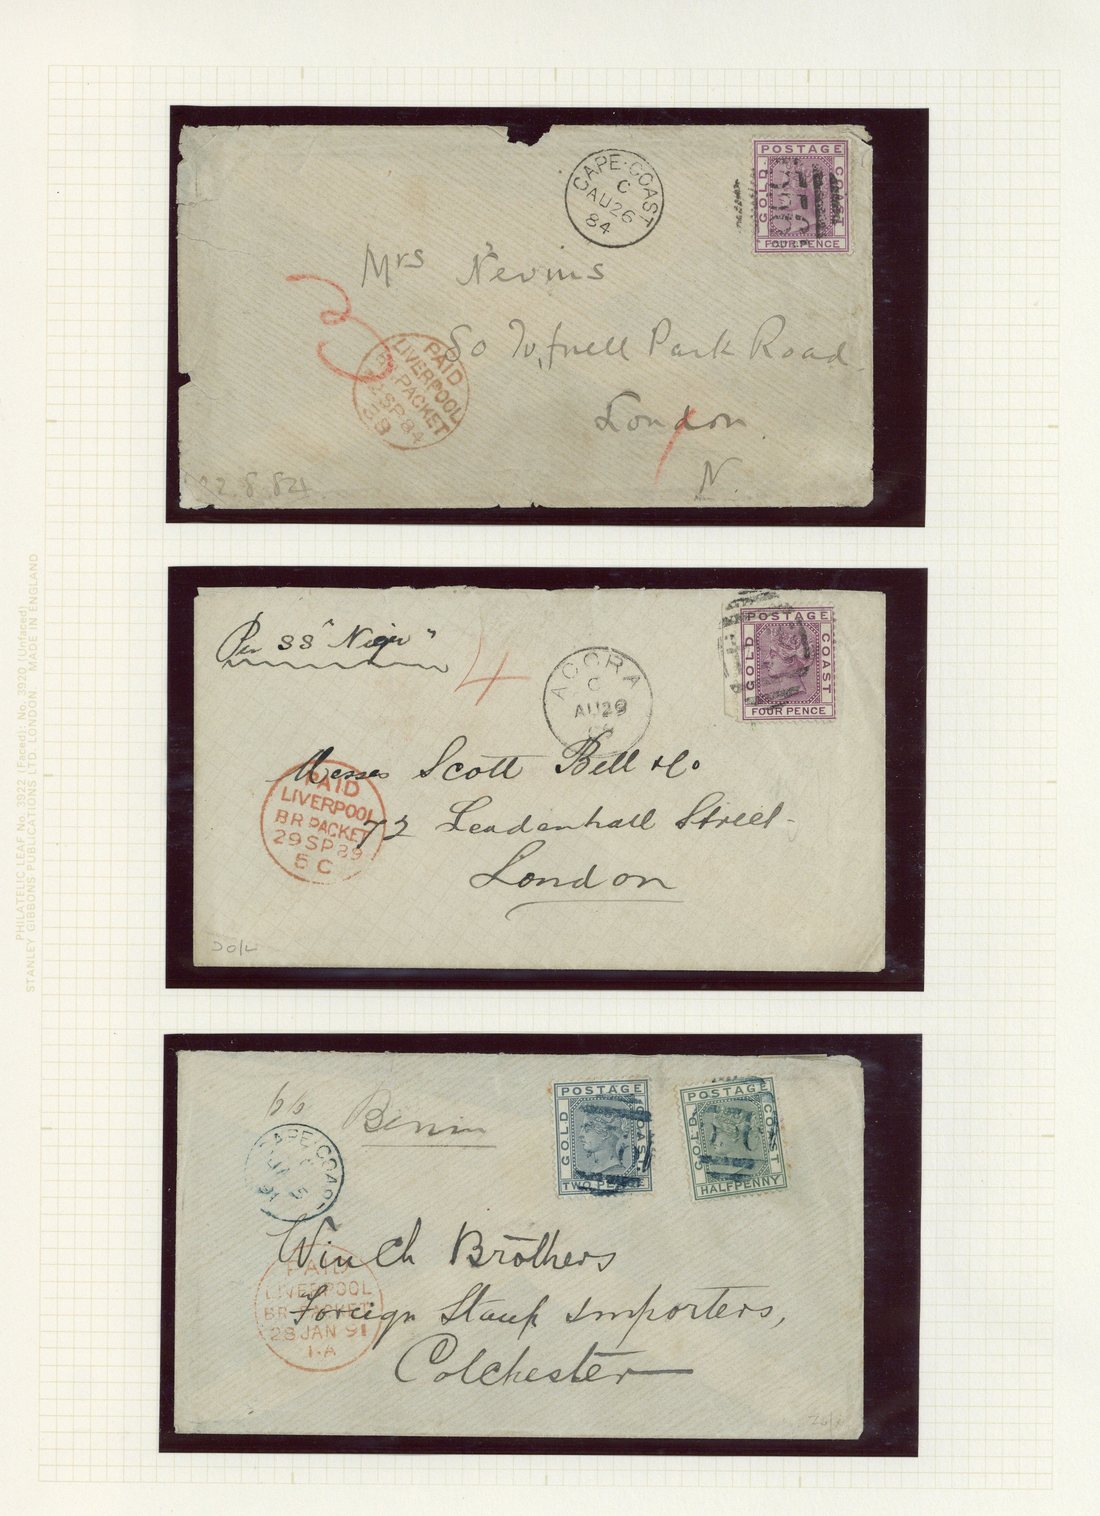 PHILATELIC LEAF No. 3922 (Faced); No. 3920 (Unfaced)
STANLEY GIBBONS PUBLICATIONS LTD. LONDON MADE IN ENGLAND
CAPE-COAST
C
AU 26
84
POSTAGE
GOLD COAST
FOUR PENCE
Mrs Nevins
3
80 Tufnell Park Road
London
N.
PAID
LIVERPOOL
BR PACKET
SP 84
8.84
Per SS "Niger"
4
ACCRA
C
AU 29
POSTAGE
GOLD COAST
FOUR PENCE
Messrs Scott Bell & Co
72 Leadenhall Street
London
PAID
LIVERPOOL
BR PACKET
29 SP 89
5 C
20/-
66 Benin
CAPE-COAST
91
POSTAGE
GOLD COAST
TWO PENCE
POSTAGE
GOLD COAST
HALFPENNY
Winch Brothers
Foreign Stamp Importers,
Colchester
PAID
LIVERPOOL
BR PACKET
28 JAN 91
1 A